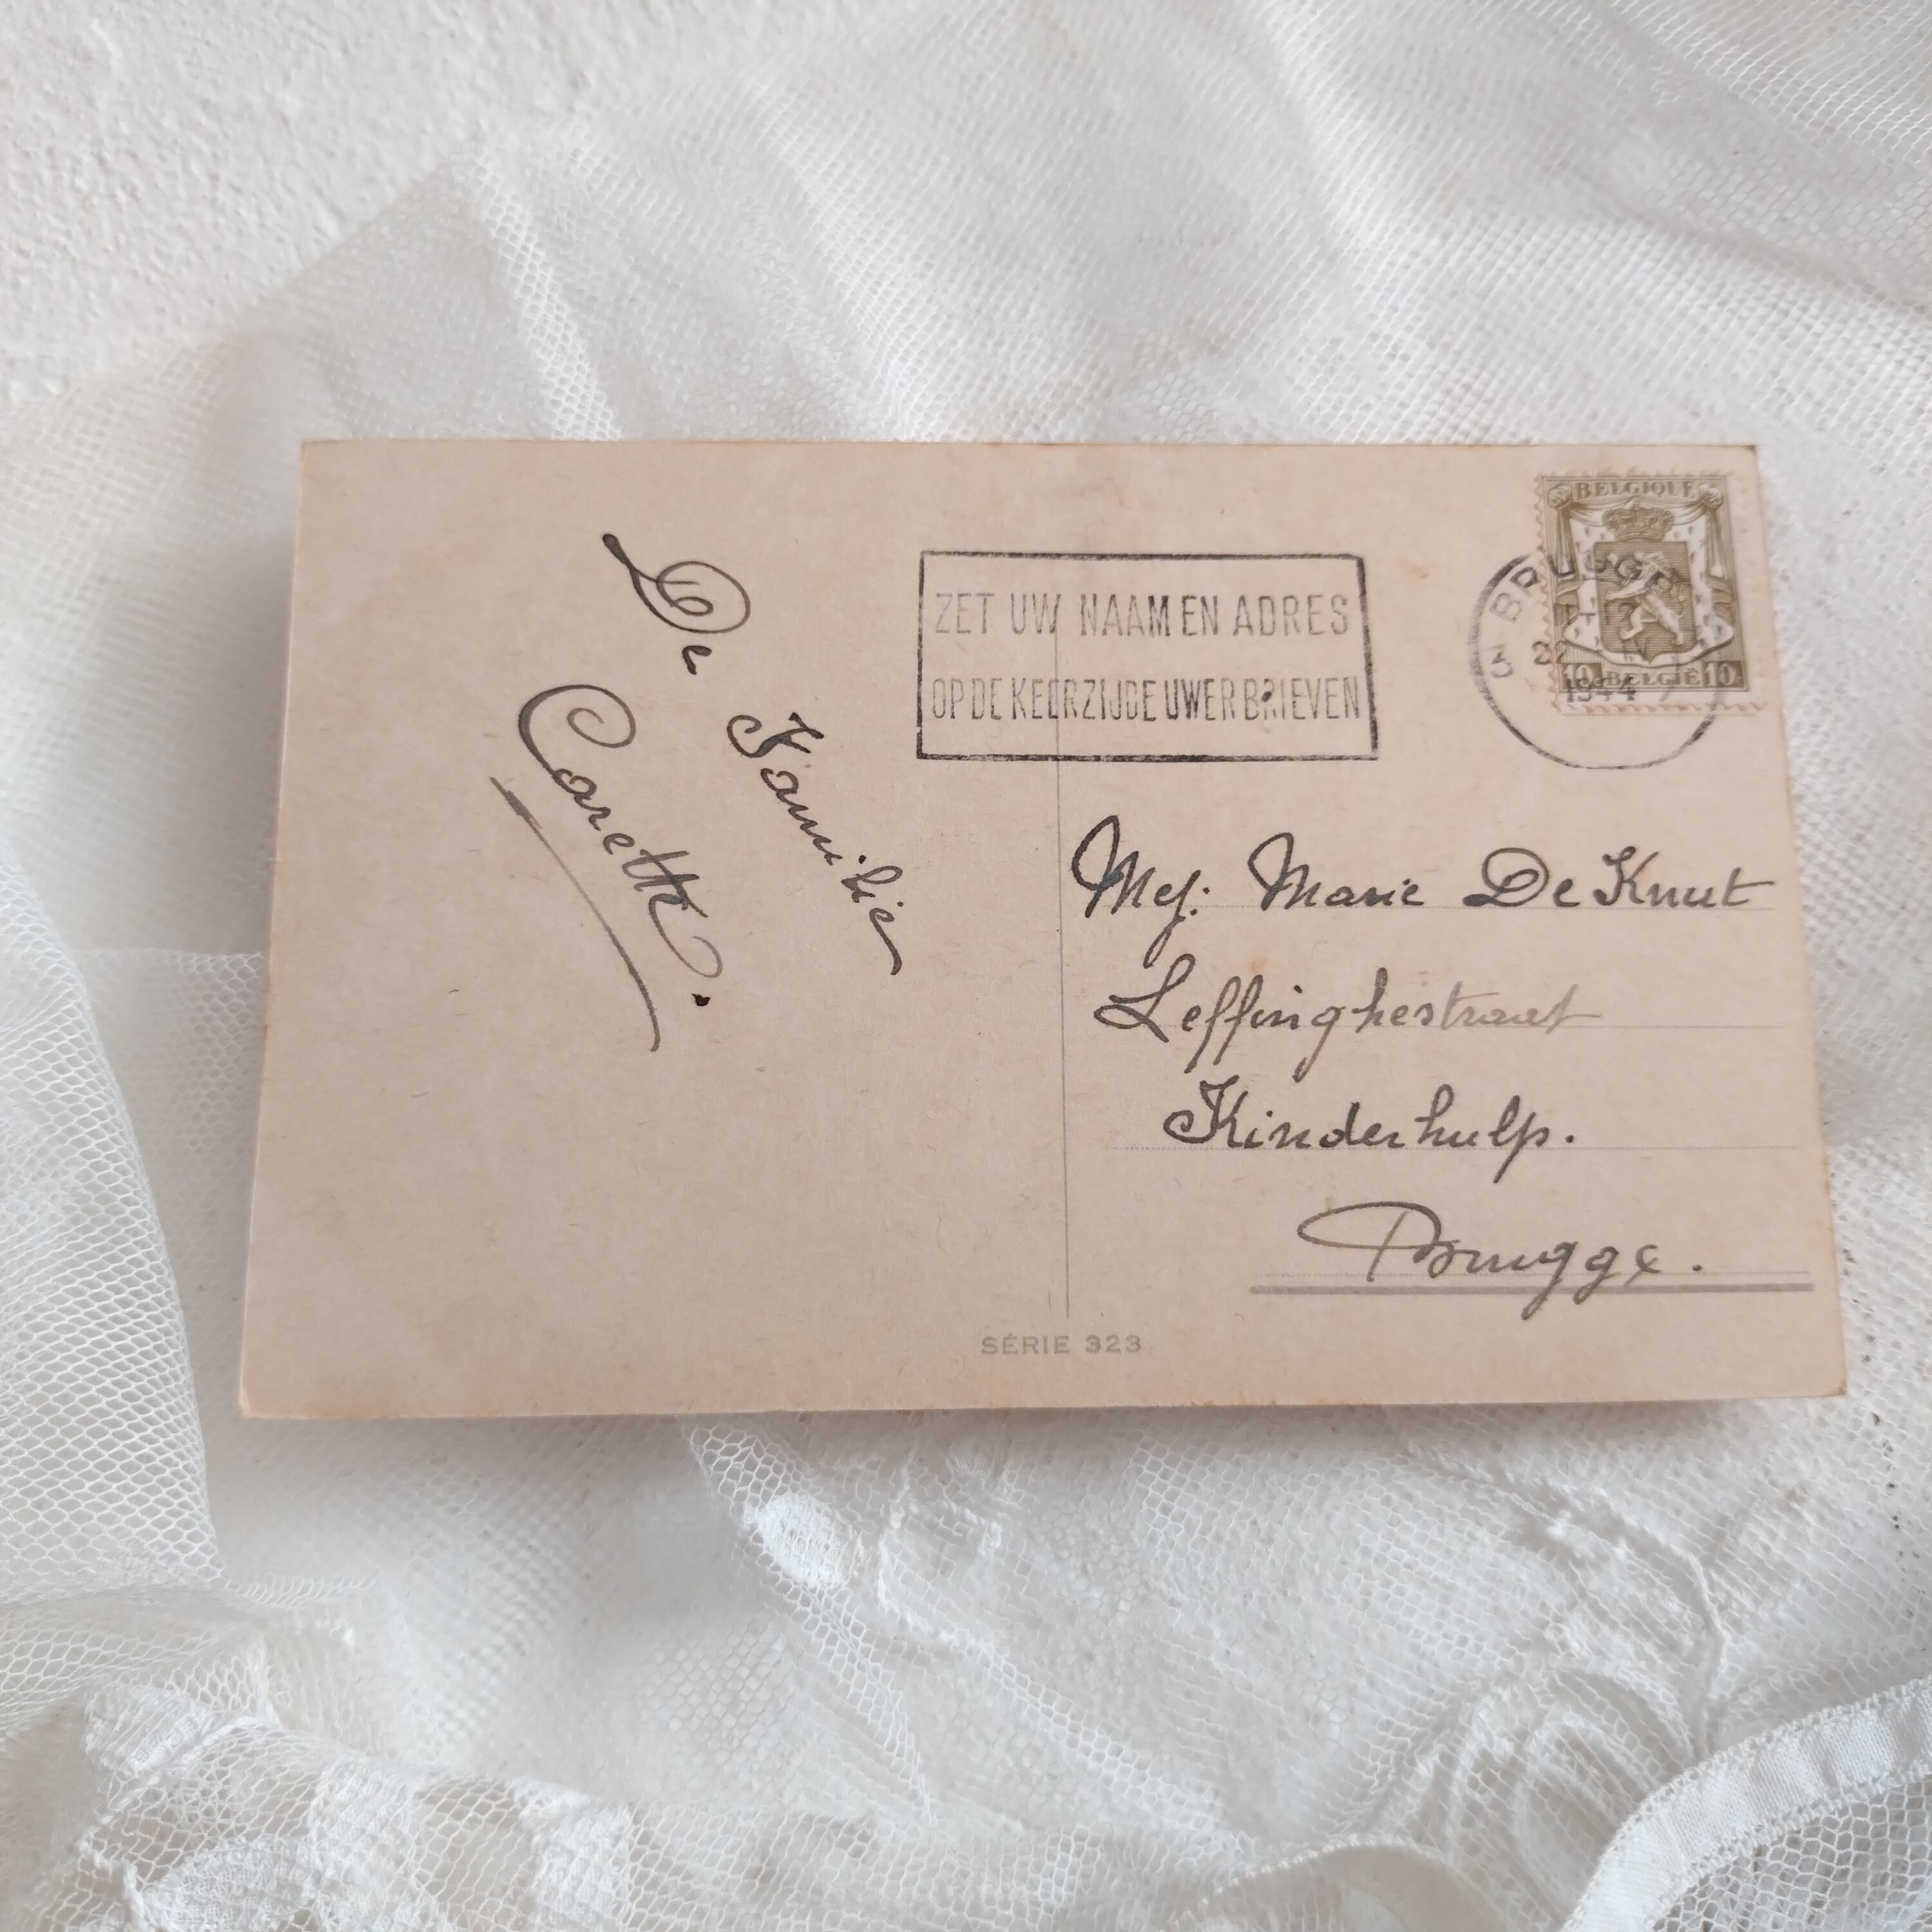 De Familie
Carette.
ZET UW NAAM EN ADRES
OP DE KEERZIJDE UWER BRIEVEN
BELGIQUE
BRUGGE
3
22
1944
10 BELGIË 10
Mej: Marie De Knut
Leffinghestraat
Kinderhulp.
Brugge.
SÉRIE 323